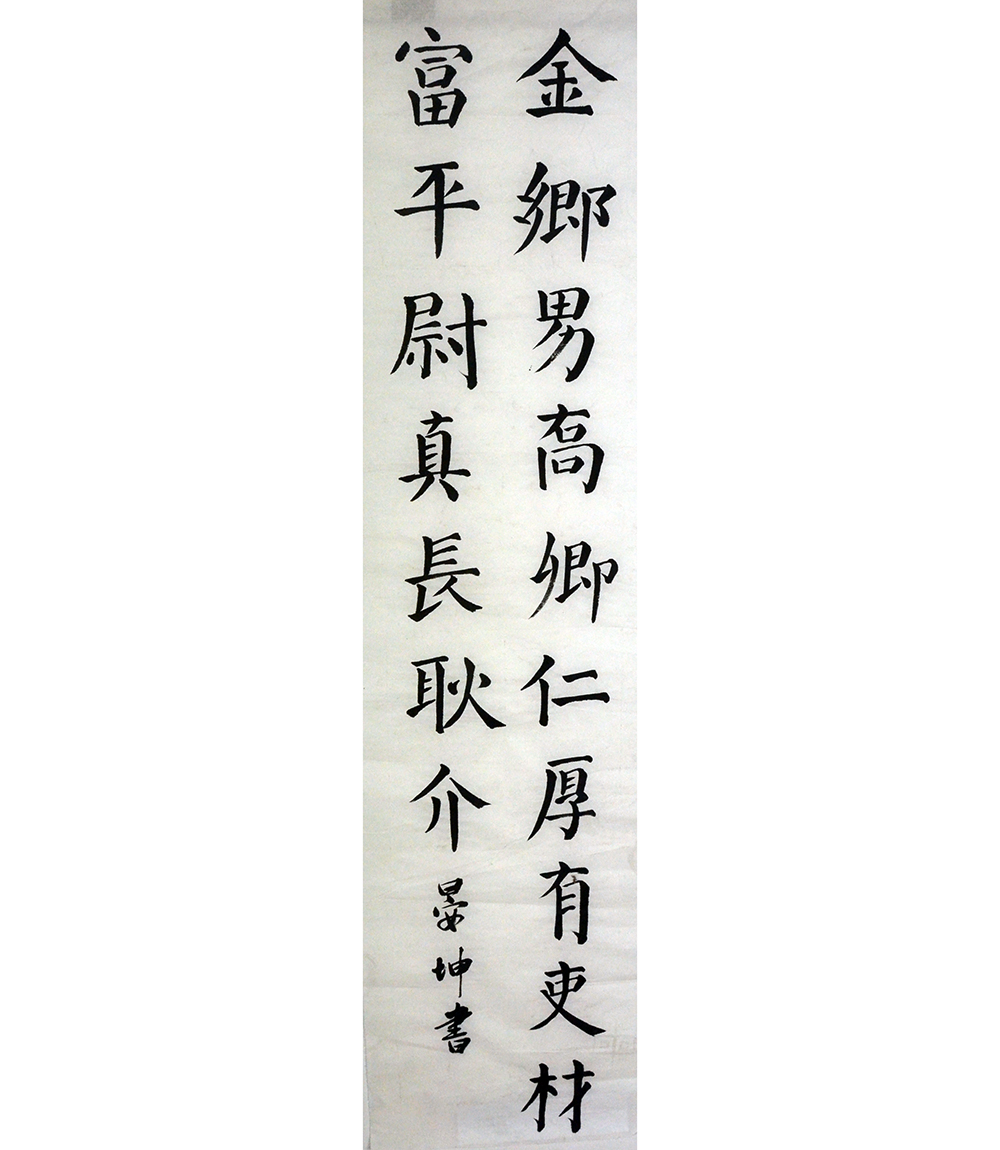 金鄉男高卿仁厚有吏材
富平尉真長耿介
晏坤書